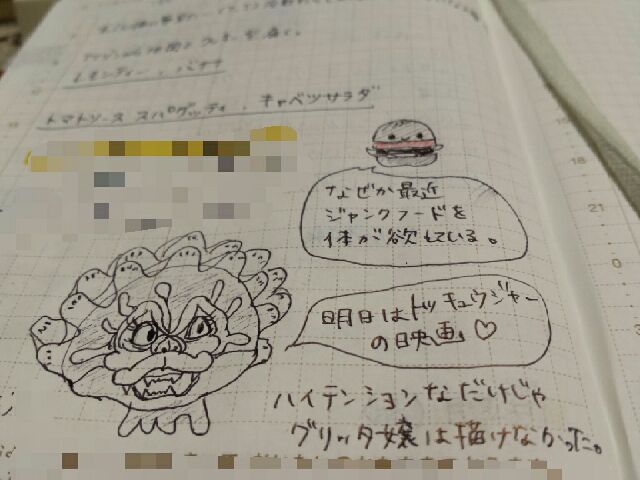 レモンティー、バナナ
トマトソース スパゲッティ、キャベツサラダ
なぜか最近
ジャンクフードを
体が欲している。
明日はトッキュウジャー
の映画♡
ハイテンションなだけじゃ
グリッタ嬢は描けなかった。
18
21
0